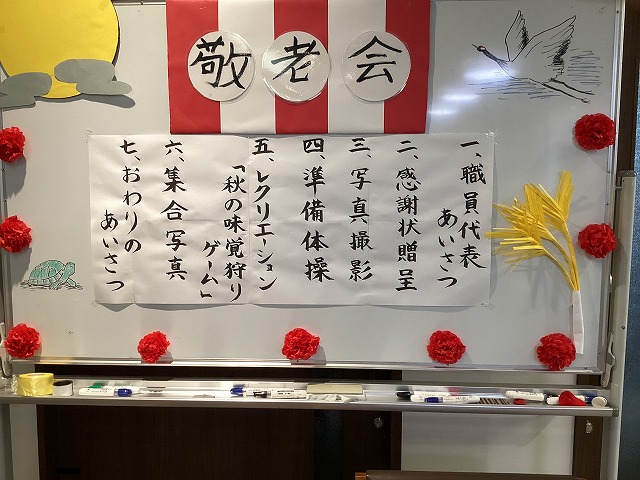 敬老会
一、職員代表
あいさつ
二、感謝状贈呈
三、写真撮影
四、準備体操
五、レクリエーション
「秋の味覚狩り
ゲーム」
六、集合写真
七、おわりの
あいさつ